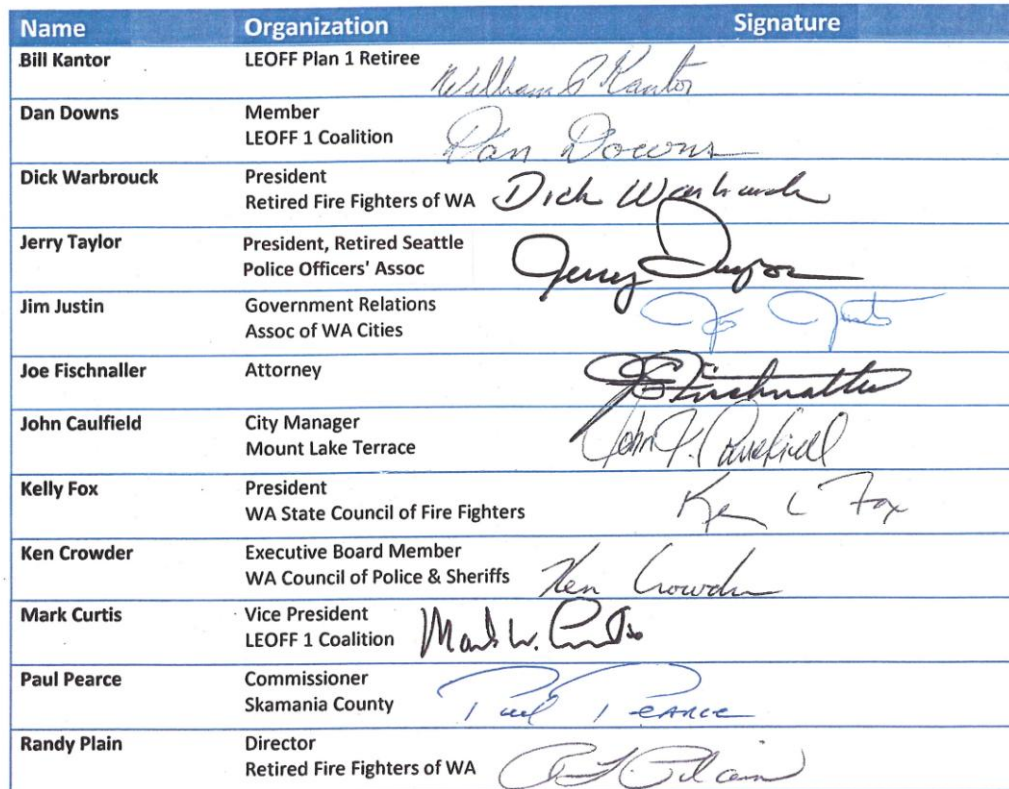 Name Organization Signature
Bill Kantor LEOFF Plan 1 Retiree William P Kantor
Dan Downs Member
LEOFF 1 Coalition Dan Downs
Dick Warbrouck President
Retired Fire Fighters of WA Dick Warbrouck
Jerry Taylor President, Retired Seattle
Police Officers' Assoc Jerry Taylor
Jim Justin Government Relations
Assoc of WA Cities
Joe Fischnaller Attorney
John Caulfield City Manager
Mount Lake Terrace John J. Caulfield
Kelly Fox President
WA State Council of Fire Fighters Fox
Ken Crowder Executive Board Member
WA Council of Police & Sheriffs Ken Crowder
Mark Curtis Vice President
LEOFF 1 Coalition Mark W. Curtis
Paul Pearce Commissioner
Skamania County Paul Pearce
Randy Plain Director
Retired Fire Fighters of WA